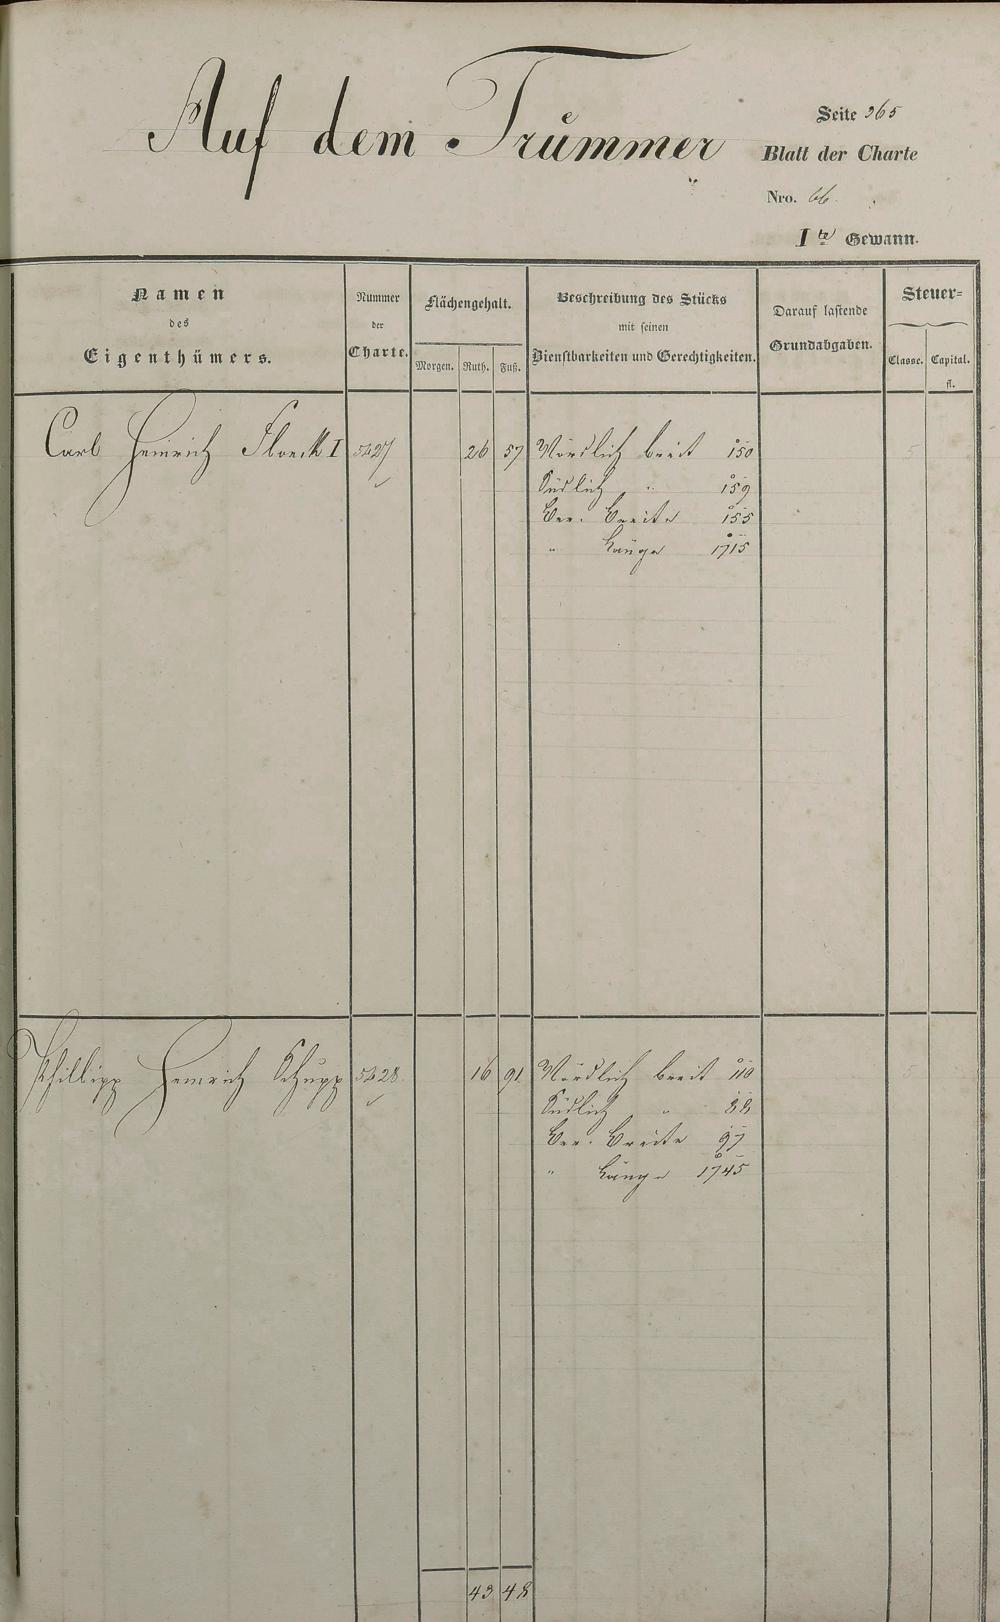 Auf dem Trümmer
Seite 365
Blatt der Charte
Nro. 66.
Ite Gewann.
Namen
des
Eigenthümers.
Nummer
der
Charte.
Flächengehalt.
Morgen. Ruth. Fuß.
Beschreibung des Stücks
mit seinen
Dienstbarkeiten und Gerechtigkeiten.
Darauf lastende
Grundabgaben.
Steuer=
Classe. Capital.
fl.
Carl Heinrich Floeck I 5427 26 57 Nördlich breit 150 5
Südlich " 159
Ver. Breite 155
" Länge 1715
Phillipp Heinrich Schupp 5428 16 91 Nördlich breit 110 5
Südlich " 88
Ver. Breite 97
" Länge 1745
43 48